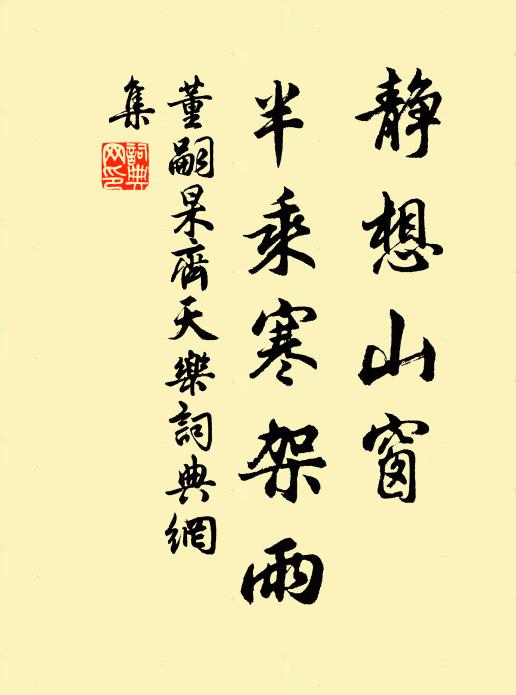 靜想山窗
半乘寒架雨
董嗣杲齊天樂詞典網
集
詞典
网印